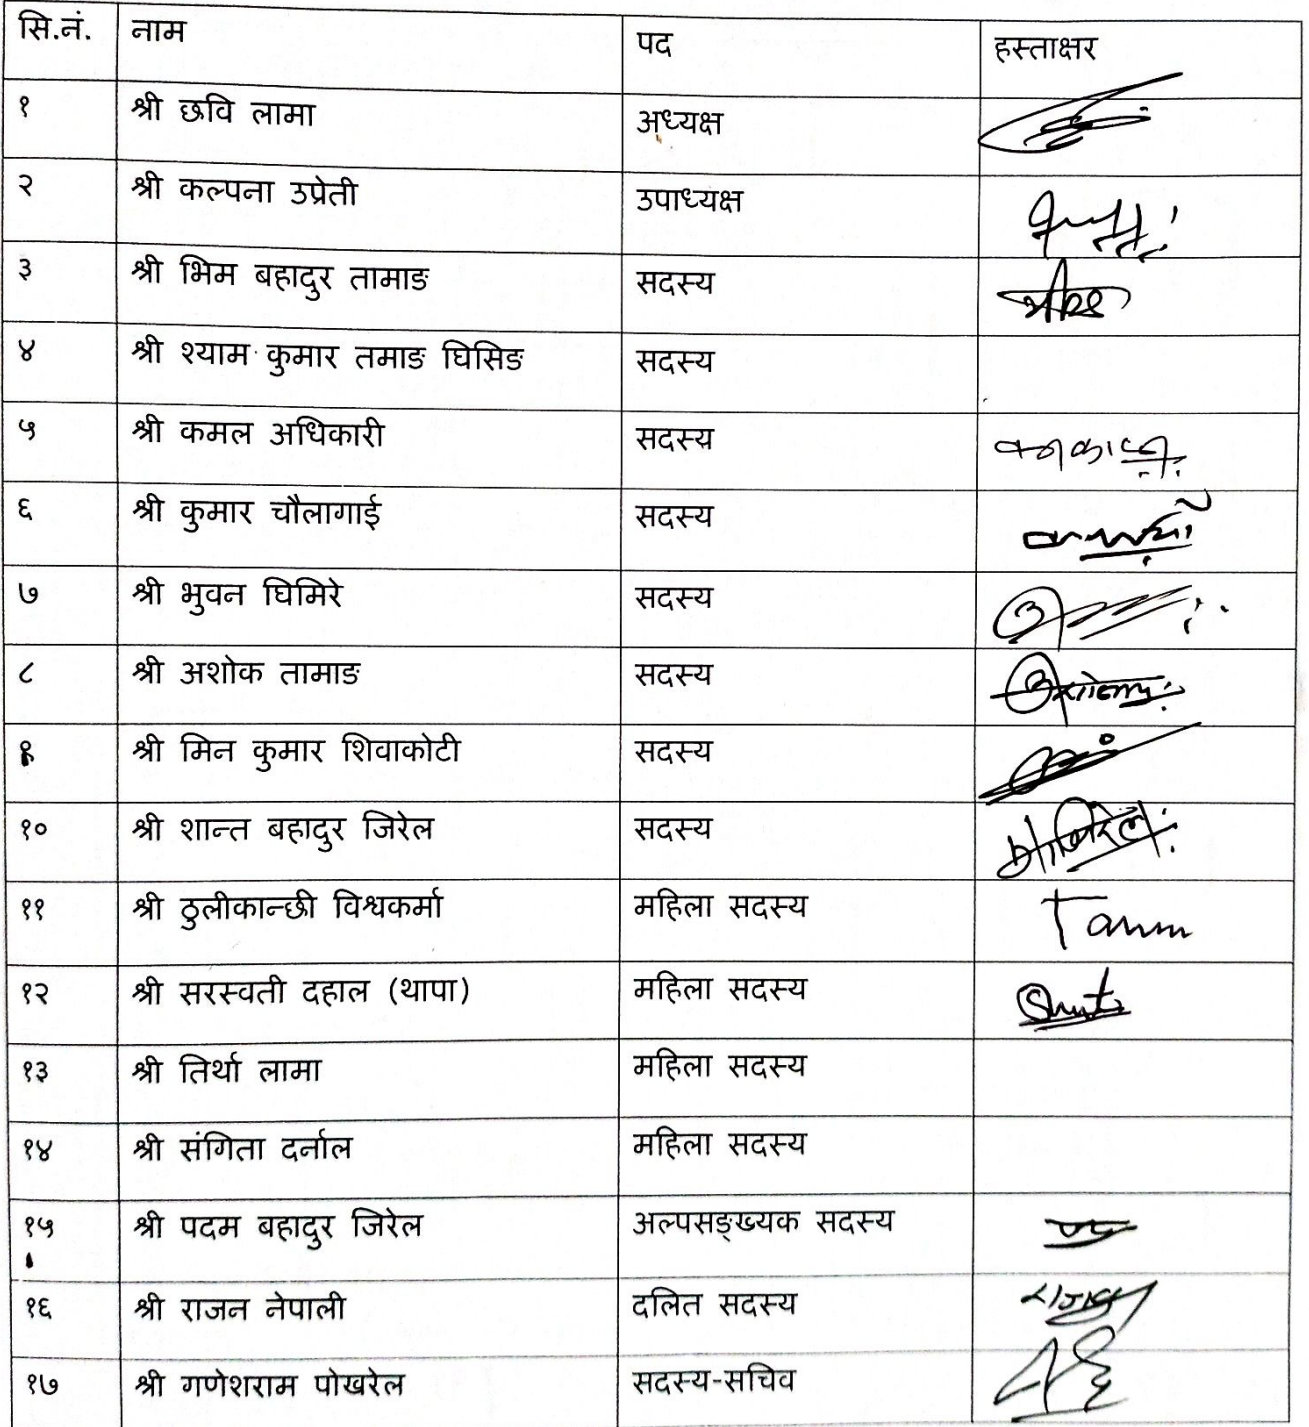 सि.नं. नाम पद हस्ताक्षर
१ श्री छवि लामा अध्यक्ष
२ श्री कल्पना उप्रेती उपाध्यक्ष
३ श्री भिम बहादुर तामाङ सदस्य
४ श्री श्याम कुमार तमाङ घिसिङ सदस्य
५ श्री कमल अधिकारी सदस्य
६ श्री कुमार चौलागाई सदस्य
७ श्री भुवन घिमिरे सदस्य
८ श्री अशोक तामाङ सदस्य
९ श्री मिन कुमार शिवाकोटी सदस्य
१० श्री शान्त बहादुर जिरेल सदस्य
११ श्री ठुलीकान्छी विश्वकर्मा महिला सदस्य
१२ श्री सरस्वती दहाल (थापा) महिला सदस्य
१३ श्री तिर्था लामा महिला सदस्य
१४ श्री संगिता दर्नाल महिला सदस्य
१५ श्री पदम बहादुर जिरेल अल्पसङ्ख्यक सदस्य
१६ श्री राजन नेपाली दलित सदस्य
१७ श्री गणेशराम पोखरेल सदस्य-सचिव